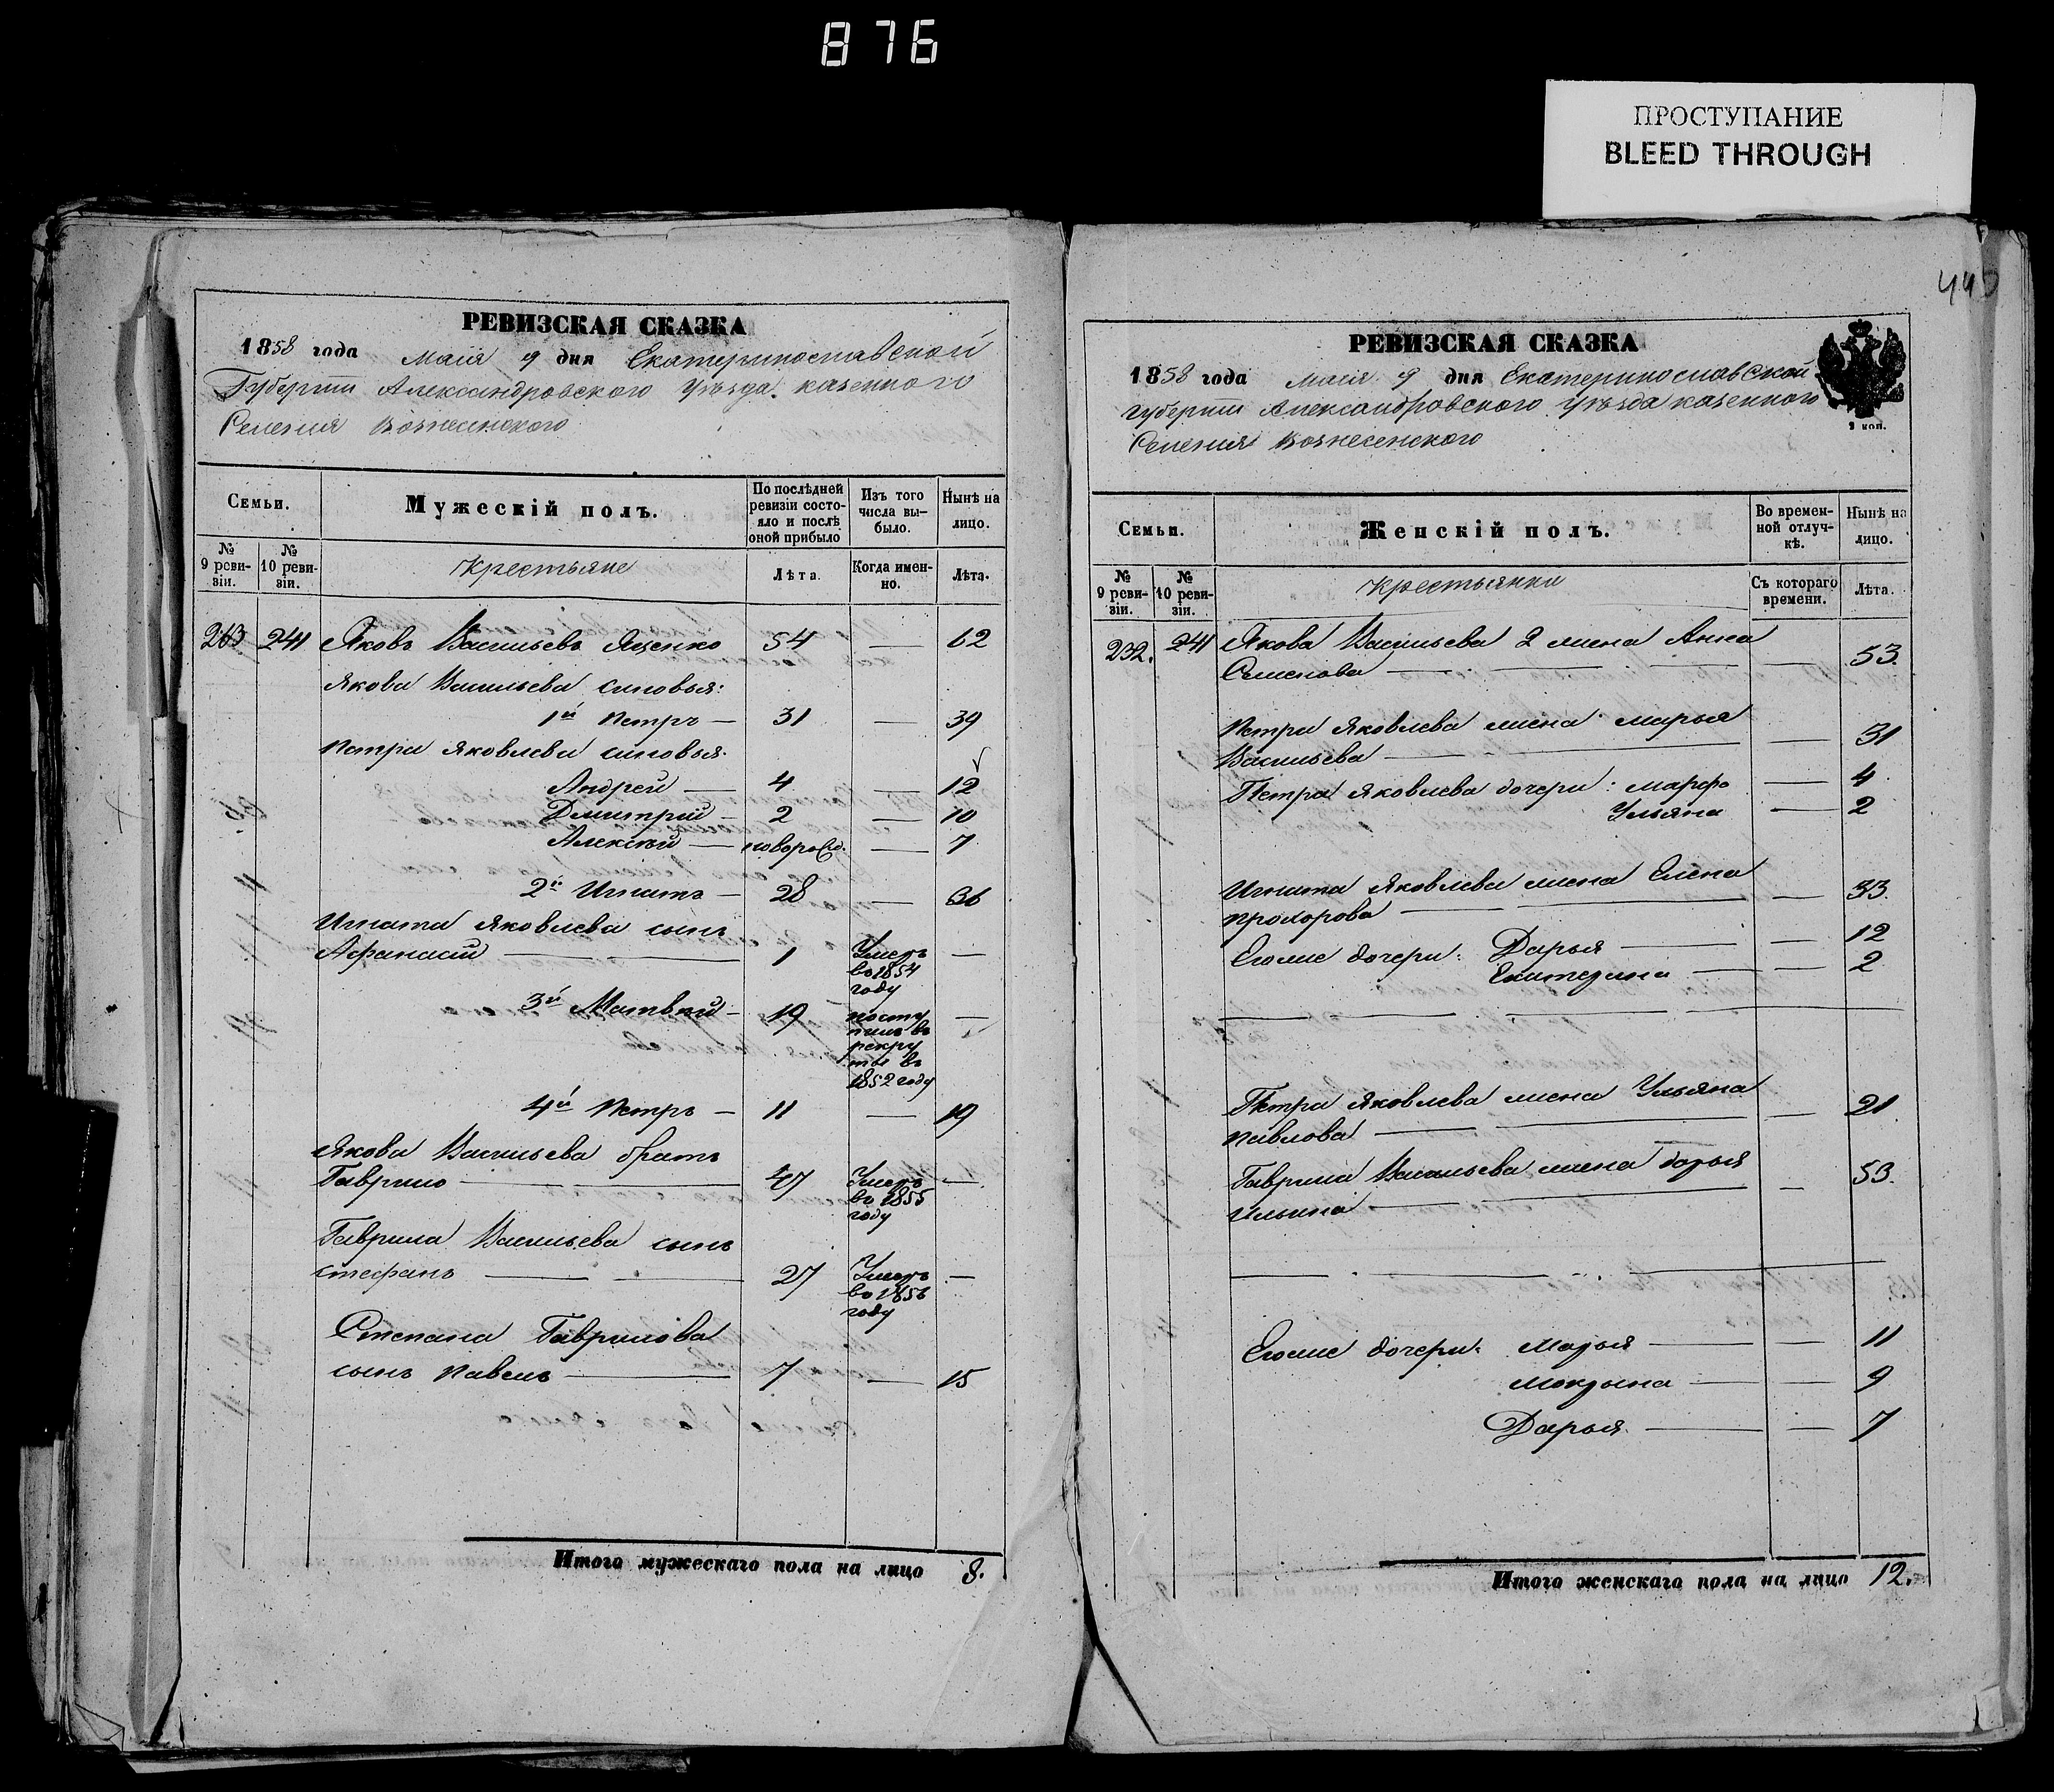 876
ПРОСТУПАНИЕ
BLEED THROUGH
440
РЕВИЗСКАЯ СКАЗКА
1858 года Маія 9 дня Екатеринославской
Губерніи Александровскаго уѣзда казеннаго
Селенія Вознесенскаго
Семьи.
Мужескій полъ.
По послѣдней ревизіи состо-
яло и послѣ
оной прибыло
Изъ того
числа вы-
было.
Нынѣ на
лицо.
№
9 реви-
зіи.
№
10 реви-
зіи.
Крестьяне
Лѣта.
Когда имен-
но.
Лѣта.
241 Яковъ Васильевъ Яценко 54 — 62
Якова Васильева сыновья:
1й Петръ — 31 — 39
Петра Яковлева сыновья:
Андрей — 4 — 12
Дмитрій — 2 — 10
Алексѣй — новорожд. — 7
2й Игнатъ — 28 — 36
Игната Яковлева сынъ
Афанасій — 1 Умеръ —
во 1854
году
3й Матвѣй — 19 посту —
пилъ въ
рекру
ты въ
1852 году
4й Петръ — 11 — 19
Якова Васильева братъ
Гаврило — 47 Умеръ —
во 1855
году
Гаврила Васильева сынъ
Стефанъ — 27 Умеръ —
во 1856
году
Степана Гаврилова
сынъ Павелъ — 7 — 15
Итого мужескаго пола на лицо 8.
РЕВИЗСКАЯ СКАЗКА
1858 года Маія 9 дня Екатеринославской
Губерніи Александровскаго уѣзда казеннаго
Селенія Вознесенскаго
2 коп.
Семьи.
Женскій полъ.
Во времен-
ной отлуч-
кѣ.
Нынѣ на
лицо.
№
9 реви-
зіи.
№
10 реви-
зіи.
Крестьянки
Съ котораго
времени.
Лѣта.
232. 241 Якова Васильева 2 жена Анна
Семенова — — 53.
Петра Яковлева жена Марья
Васильева — — 31
Петра Яковлева дочери: Марфа — 4
Ульяна — 2
Игната Яковлева жена Елена
Прохорова — — 33.
Егоже дочери: Дарья — — 12
Екатерина — — 2
Петра Яковлева жена Ульяна
Павлова — — 21
Гаврила Васильева жена Дарья
Ильина — — 53.
Егоже дочери: Марья — — 11
Мокрына — — 9
Дарья — — 7
Итого женскаго пола на лицо 12.